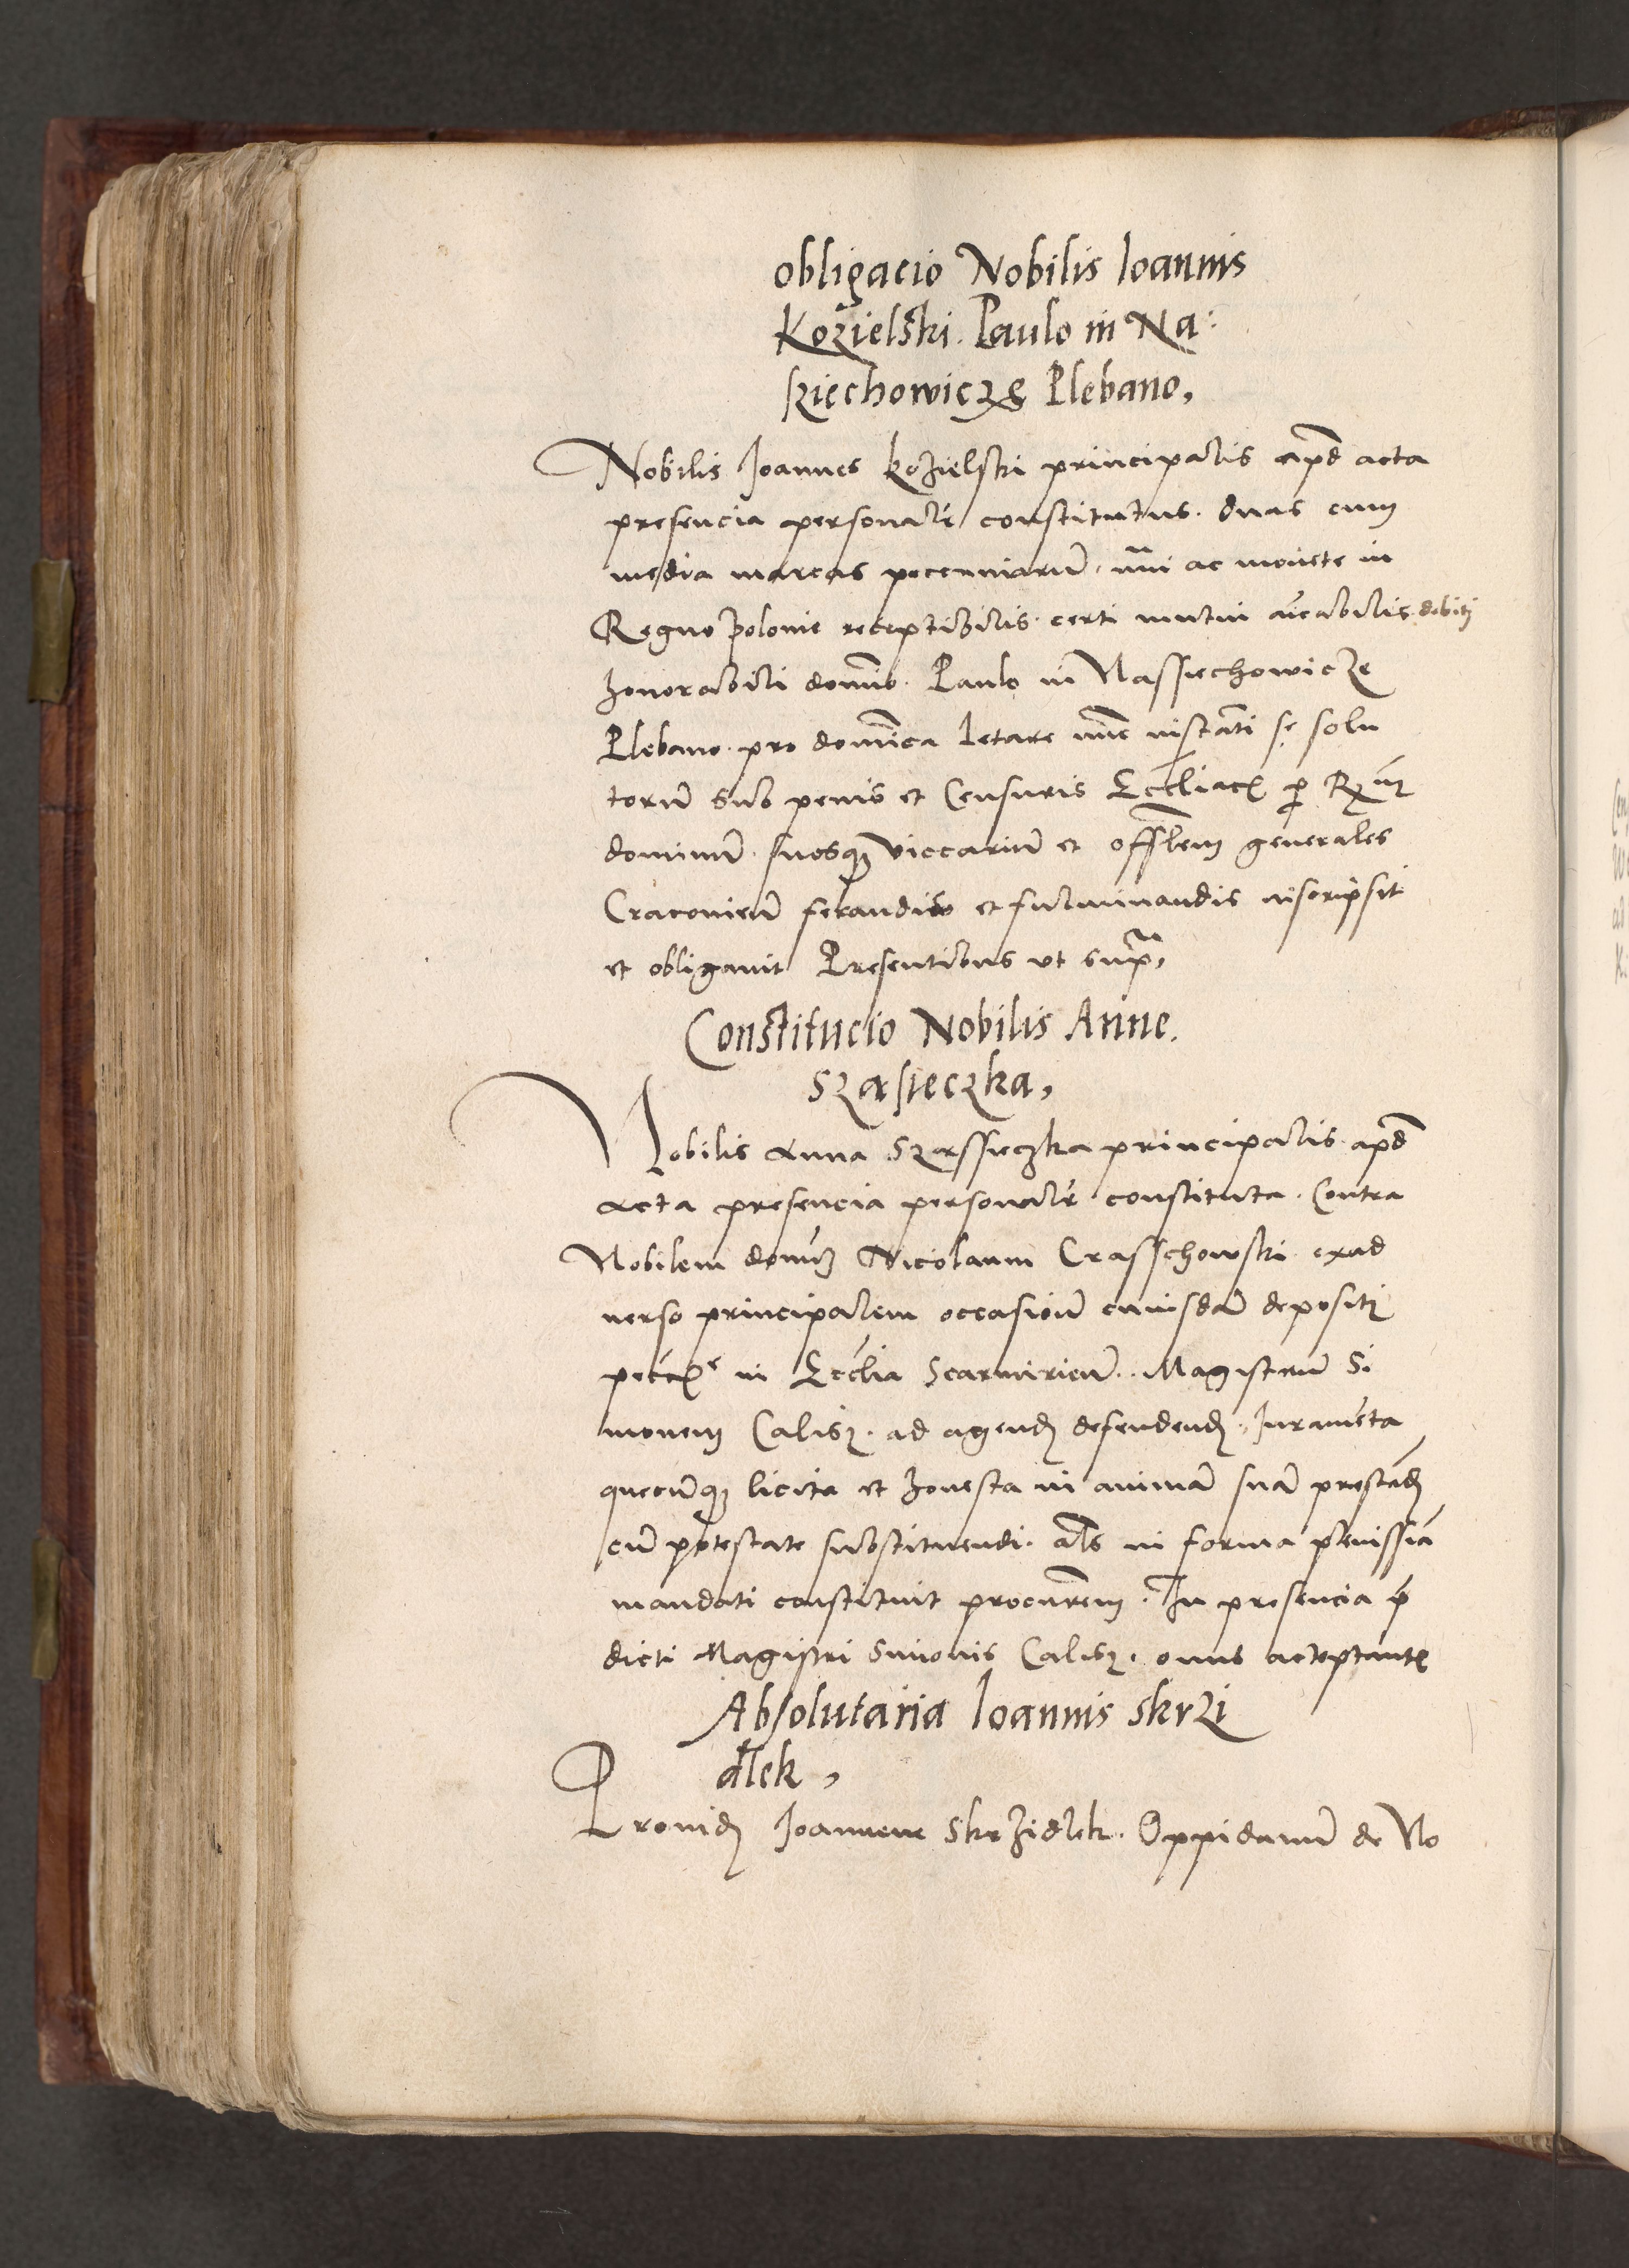 obligacio Nobilis Ioannis
Kozielski. Paulo in Na:
sziechowicze Plebano,
Nobilis Joannes kozielski principalis apud acta
presencia personalr constitutus. duas cum
media marcas pecuniarum. nri ac monete in
Regno polonie receptibilis. certi mutui amicabilis debiti
honorabili domino. Paulo in Nassiechowicze
Plebano. pro dominica letare nunc instanti se solu
torum sub penis et Censuris Ecclias per R
dominum. suosque viccarium et offlem generales
Cracovien ferandis et fulminandis inscripsit
et obligavit Presentibus ut supra,
Constitucio Nobilis Anne.
Szasieczka,
Nobilis Anna Szassieczka principalis. apud
Acta presencia personalr constituta. Contra
Nobilem domn Nicolaum Crasschowski. exad
verso principalem occasione cuiusdam depositi
pecu in Ecclia Scarmirien. Magistrum Si
monem Calisz. ad agend defendend. Juramenta
quecunque licita et honesta in animam suam prestand
cum potestate substituendi. als in forma plenissima
mandati constituit procurem. In presencia pre
dicti Magistri Simonis Calisz. onus acceptante
Absolutaria Ioannis skrzi
dlek,
Provid Joannem Skrzidlek. Oppidanum de No